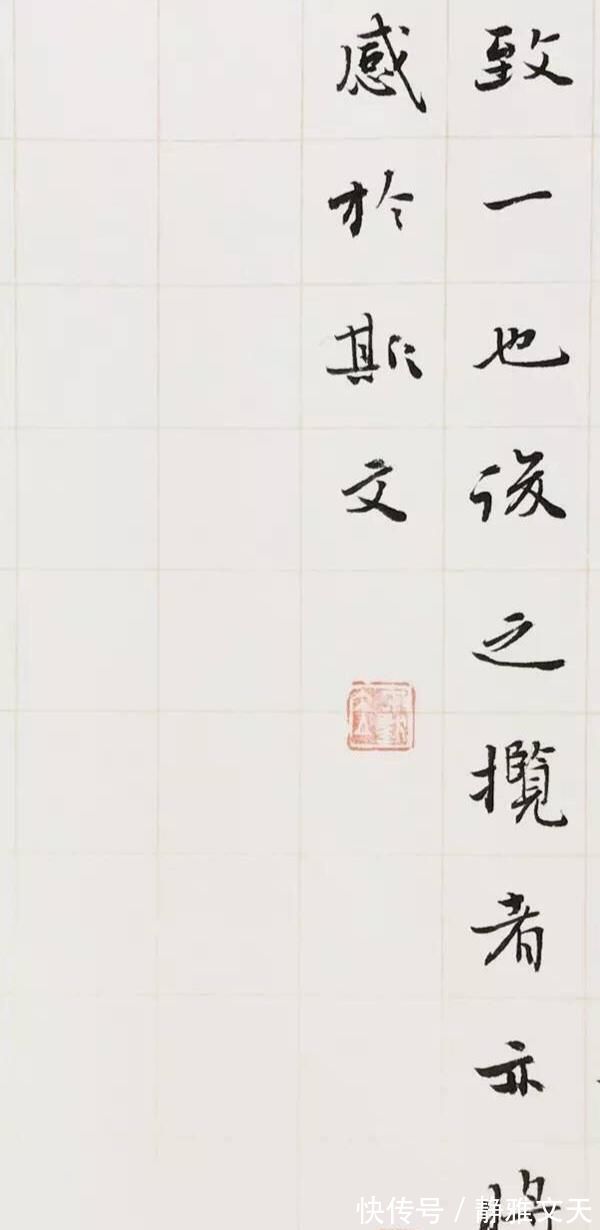 致一也後之攬者亦将
感於斯文
快传号 / 静雅文天